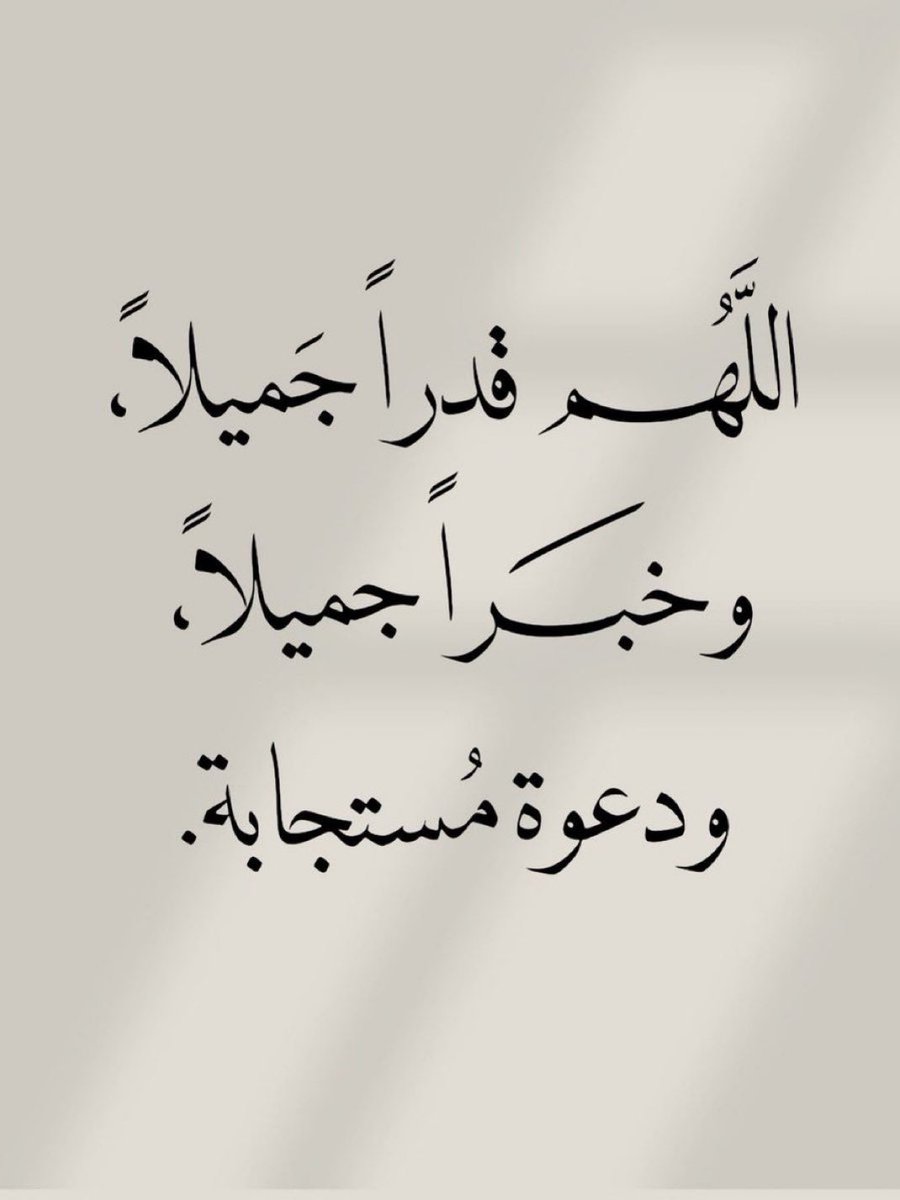 اللَّهُم قدراً جَميلاً،
وخبَراً جميلاً،
ودعوة مُستجابة.